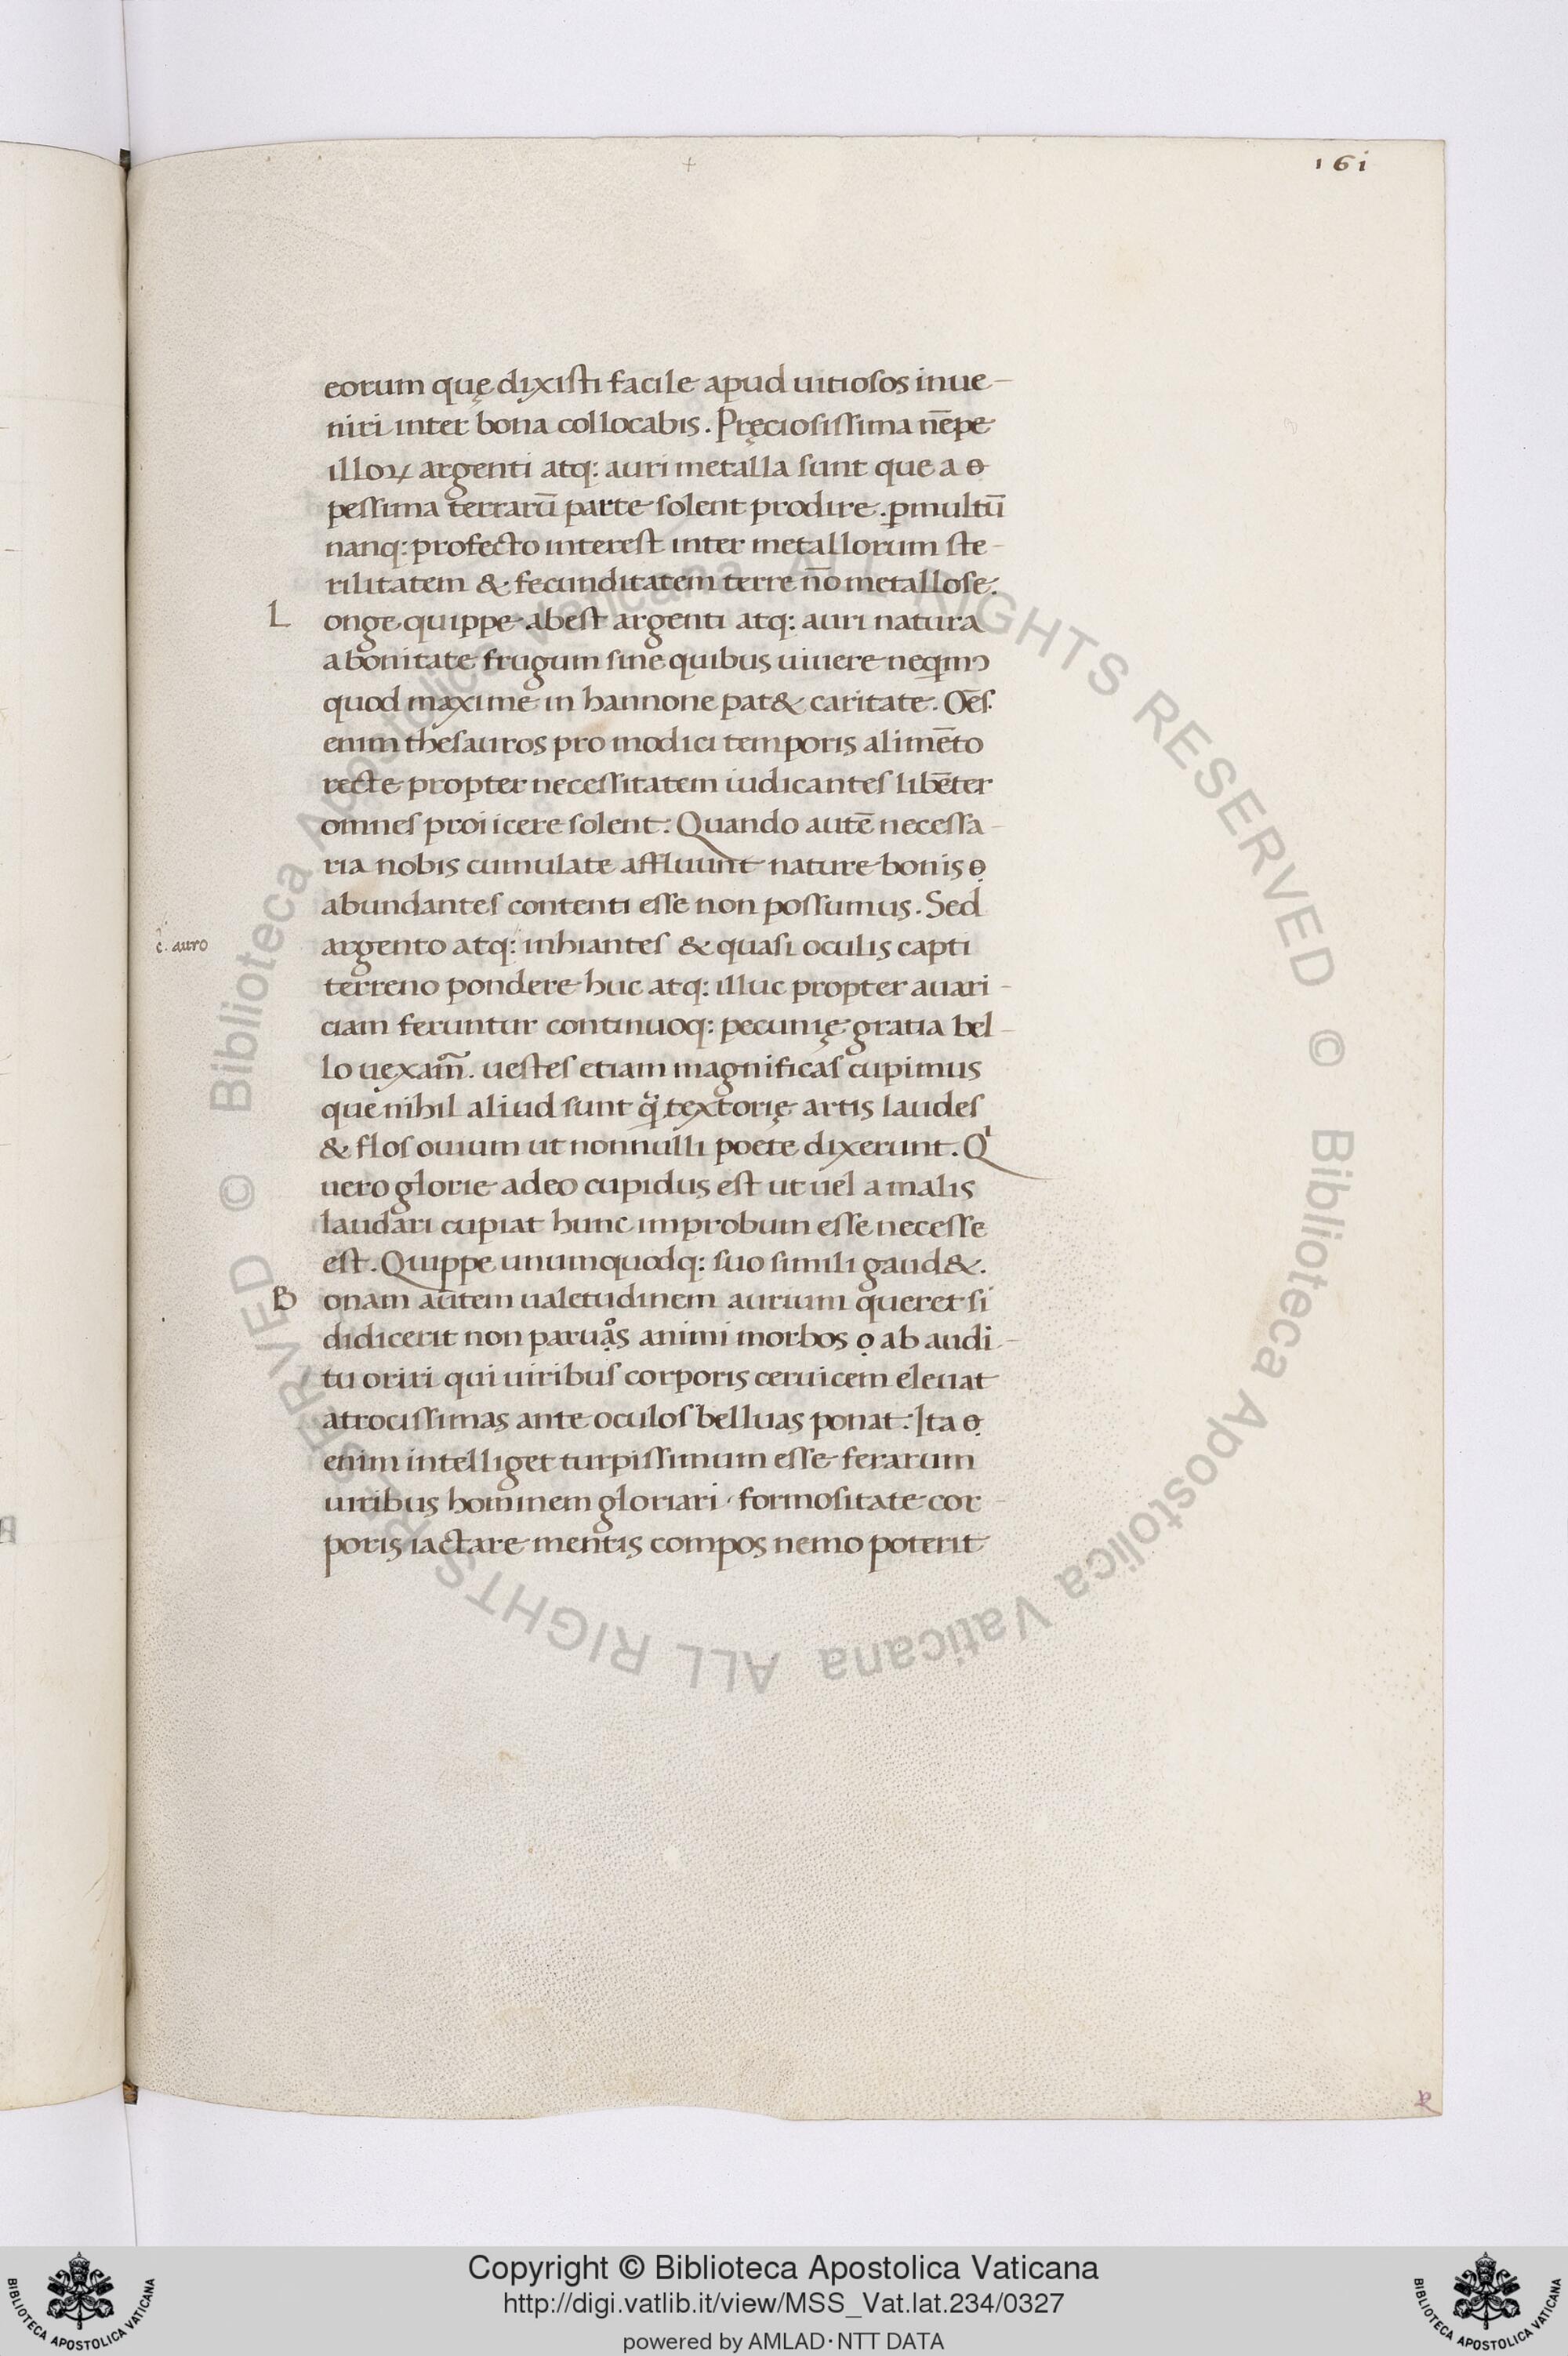 161
eorum quę dixisti facile apud uitiosos inue-
niri inter bona collocabis. Pręciosissima nēpe
illoꝝ argenti atq: auri metalla sunt que a ɵ
pessima terrarū parte solent prodire. ꝑmultū
nanq: profecto interest inter metallorum ste-
rilitatem & fecunditatem terre nō metallose.
Longe quippe abest argenti atq: auri natura
a bonitate frugum sine quibus uiuere neqmꝰ
quod maxime in hannone pat& caritate. Oēs
enim thesauros pro modici temporis alimēto
recte propter necessitatem iudicantes libēter
omnes proiicere solent. Quando autē necessa-
ria nobis cumulate affluunt nature bonis ɵ
abundantes contenti esse non possumus. Sed
c. auro
argento atq: inhiantes & quasi oculis capti
terreno pondere huc atq: illuc propter auari-
ciam feruntur continuoq: pecunię gratia bel-
lo uexam̃. uestes etiam magnificas cupimus
que nihil aliud sunt q̈ textorię artis laudes
& flos ouium ut nonnulli poete dixerunt. Qⁱ
uero glorie adeo cupidus est ut uel a malis
laudari cupiat hunc improbum esse necesse
est. Quippe unumquodq: suo simili gaud&.
Bonam autem ualetudinem aurium queret si
didicerit non paruạoͦs animi morbos ọ ab audi-
tu oriri qui uiribus corporis ceruicem eleuat
atrocissimas ante oculos belluas ponat. Ita ɵ
enim intelliget turpissimum esse ferarum
uiribus hominem gloriari. formositate cor-
poris iactare mentis compos nemo poterit
© Biblioteca Apostolica Vaticana ALL RIGHTS RESERVED © Biblioteca Apostolica Vaticana ALL RIGHTS RESERVED
Copyright © Biblioteca Apostolica Vaticana
http://digi.vatlib.it/view/MSS_Vat.lat.234/0327
powered by AMLAD·NTT DATA
BIBLIOTECA APOSTOLICA VATICANA
BIBLIOTECA APOSTOLICA VATICANA